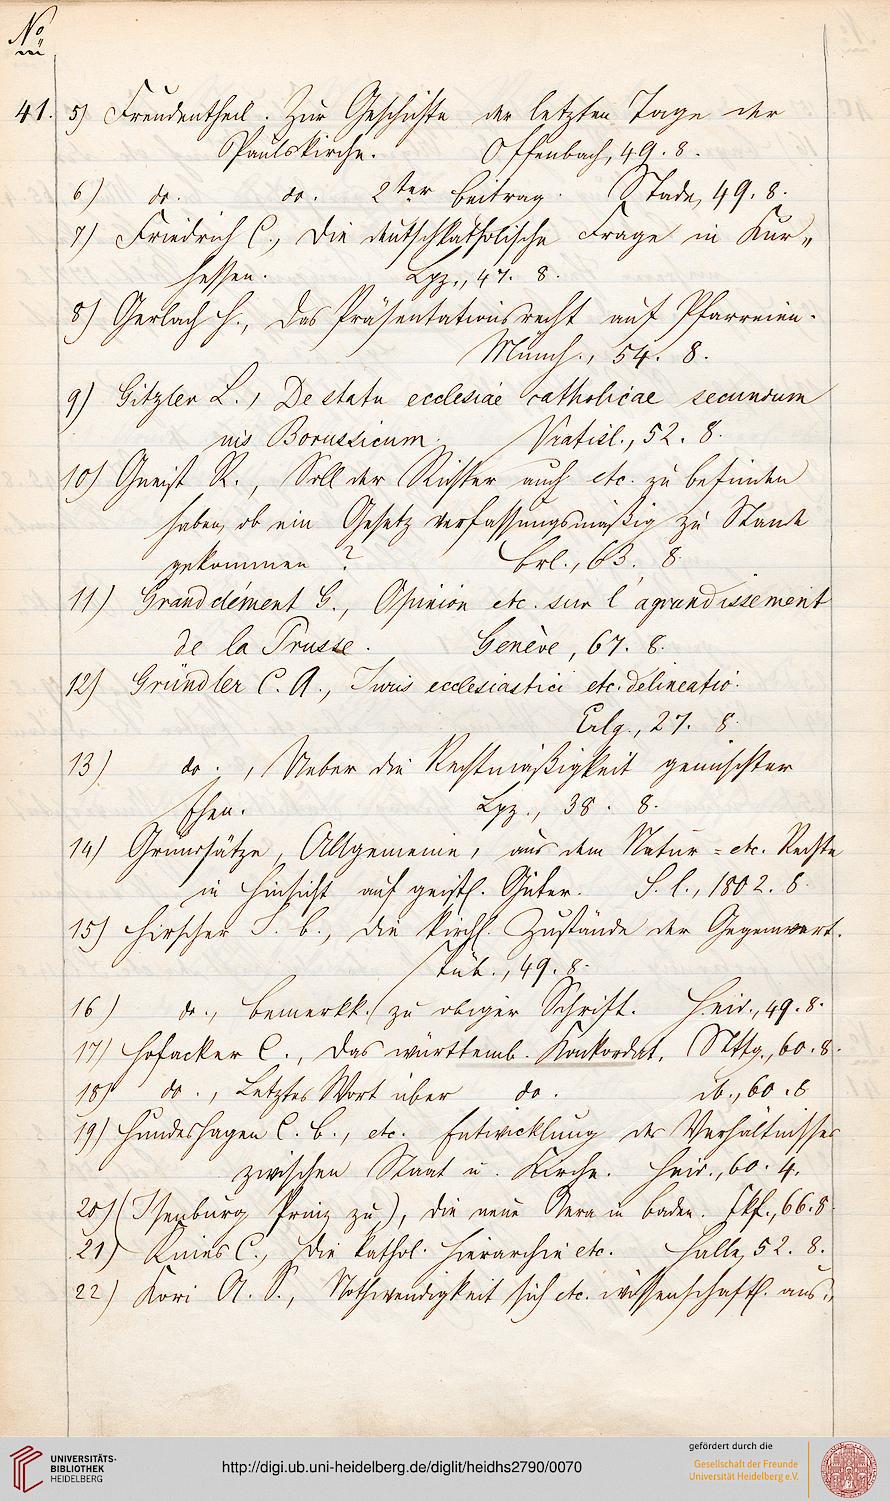 No
41. 5) Freudentheil. Zur Geschichte der letzten Tage der
Paulskirche. Offenbach, 49. 8.
6) do. do. 2ter Beitrag. Stade, 49. 8.
7) Friedrich C., Die deutschkatholische Frage in Kur„
hessen. Lpz., 47. 8.
8) Gerlach H., Das Präsentationsrecht auf Pfarreien.
Münch., 54. 8.
9) Gitzler L., De statu ecclesiae catholicae secundum
ius Borussicum. Vratisl., 52. 8.
10) Gneist R., Soll der Richter auch etc. zu befinden
haben, ob ein Gesetz verfassungsmäßig zu Stande
gekommen? Brl., 63. 8.
11) Grandclément G., Opinion etc. sur l'agrandissement
de la Prusse. Genève, 67. 8.
12) Gründler C. A., Iuris ecclesiastici etc. delineatio.
Erlg., 27. 8.
13) do., Ueber die Rechtmäßigkeit gemischter
Ehen. Lpz., 38. 8.
14) Grundsätze, Allgemeine, aus dem Natur= etc. Rechte
in Hinsicht auf geistl. Güter. S. l., 1802. 8.
15) Hirscher J. B., Die kirchl. Zustände der Gegenwart.
Tüb., 49. 8.
16) do., Bemerkk. zu obiger Schrift. Heid., 49. 8.
17) Hofacker C., Das württemb. Konkordat. Sttg., 60. 8.
18) do., Letztes Wort über do. ib., 60. 8
19) Hundeshagen C. B., etc. Entwicklung des Verhältnisses
zwischen Staat u. Kirche. Heid., 60. 4.
20) (Isenburg Prinz zu), Die neue Aera in Baden. Fkf., 66. 8.
21) Knies C., Die kathol. Hierarchie etc. Halle, 52. 8.
22) Kori A. S., Nothwendigkeit sich etc. wissenschaftl. aus„
UNIVERSITÄTS-
BIBLIOTHEK
HEIDELBERG
http://digi.ub.uni-heidelberg.de/diglit/heidhs2790/0070
gefördert durch die
Gesellschaft der Freunde
Universität Heidelberg e.V.